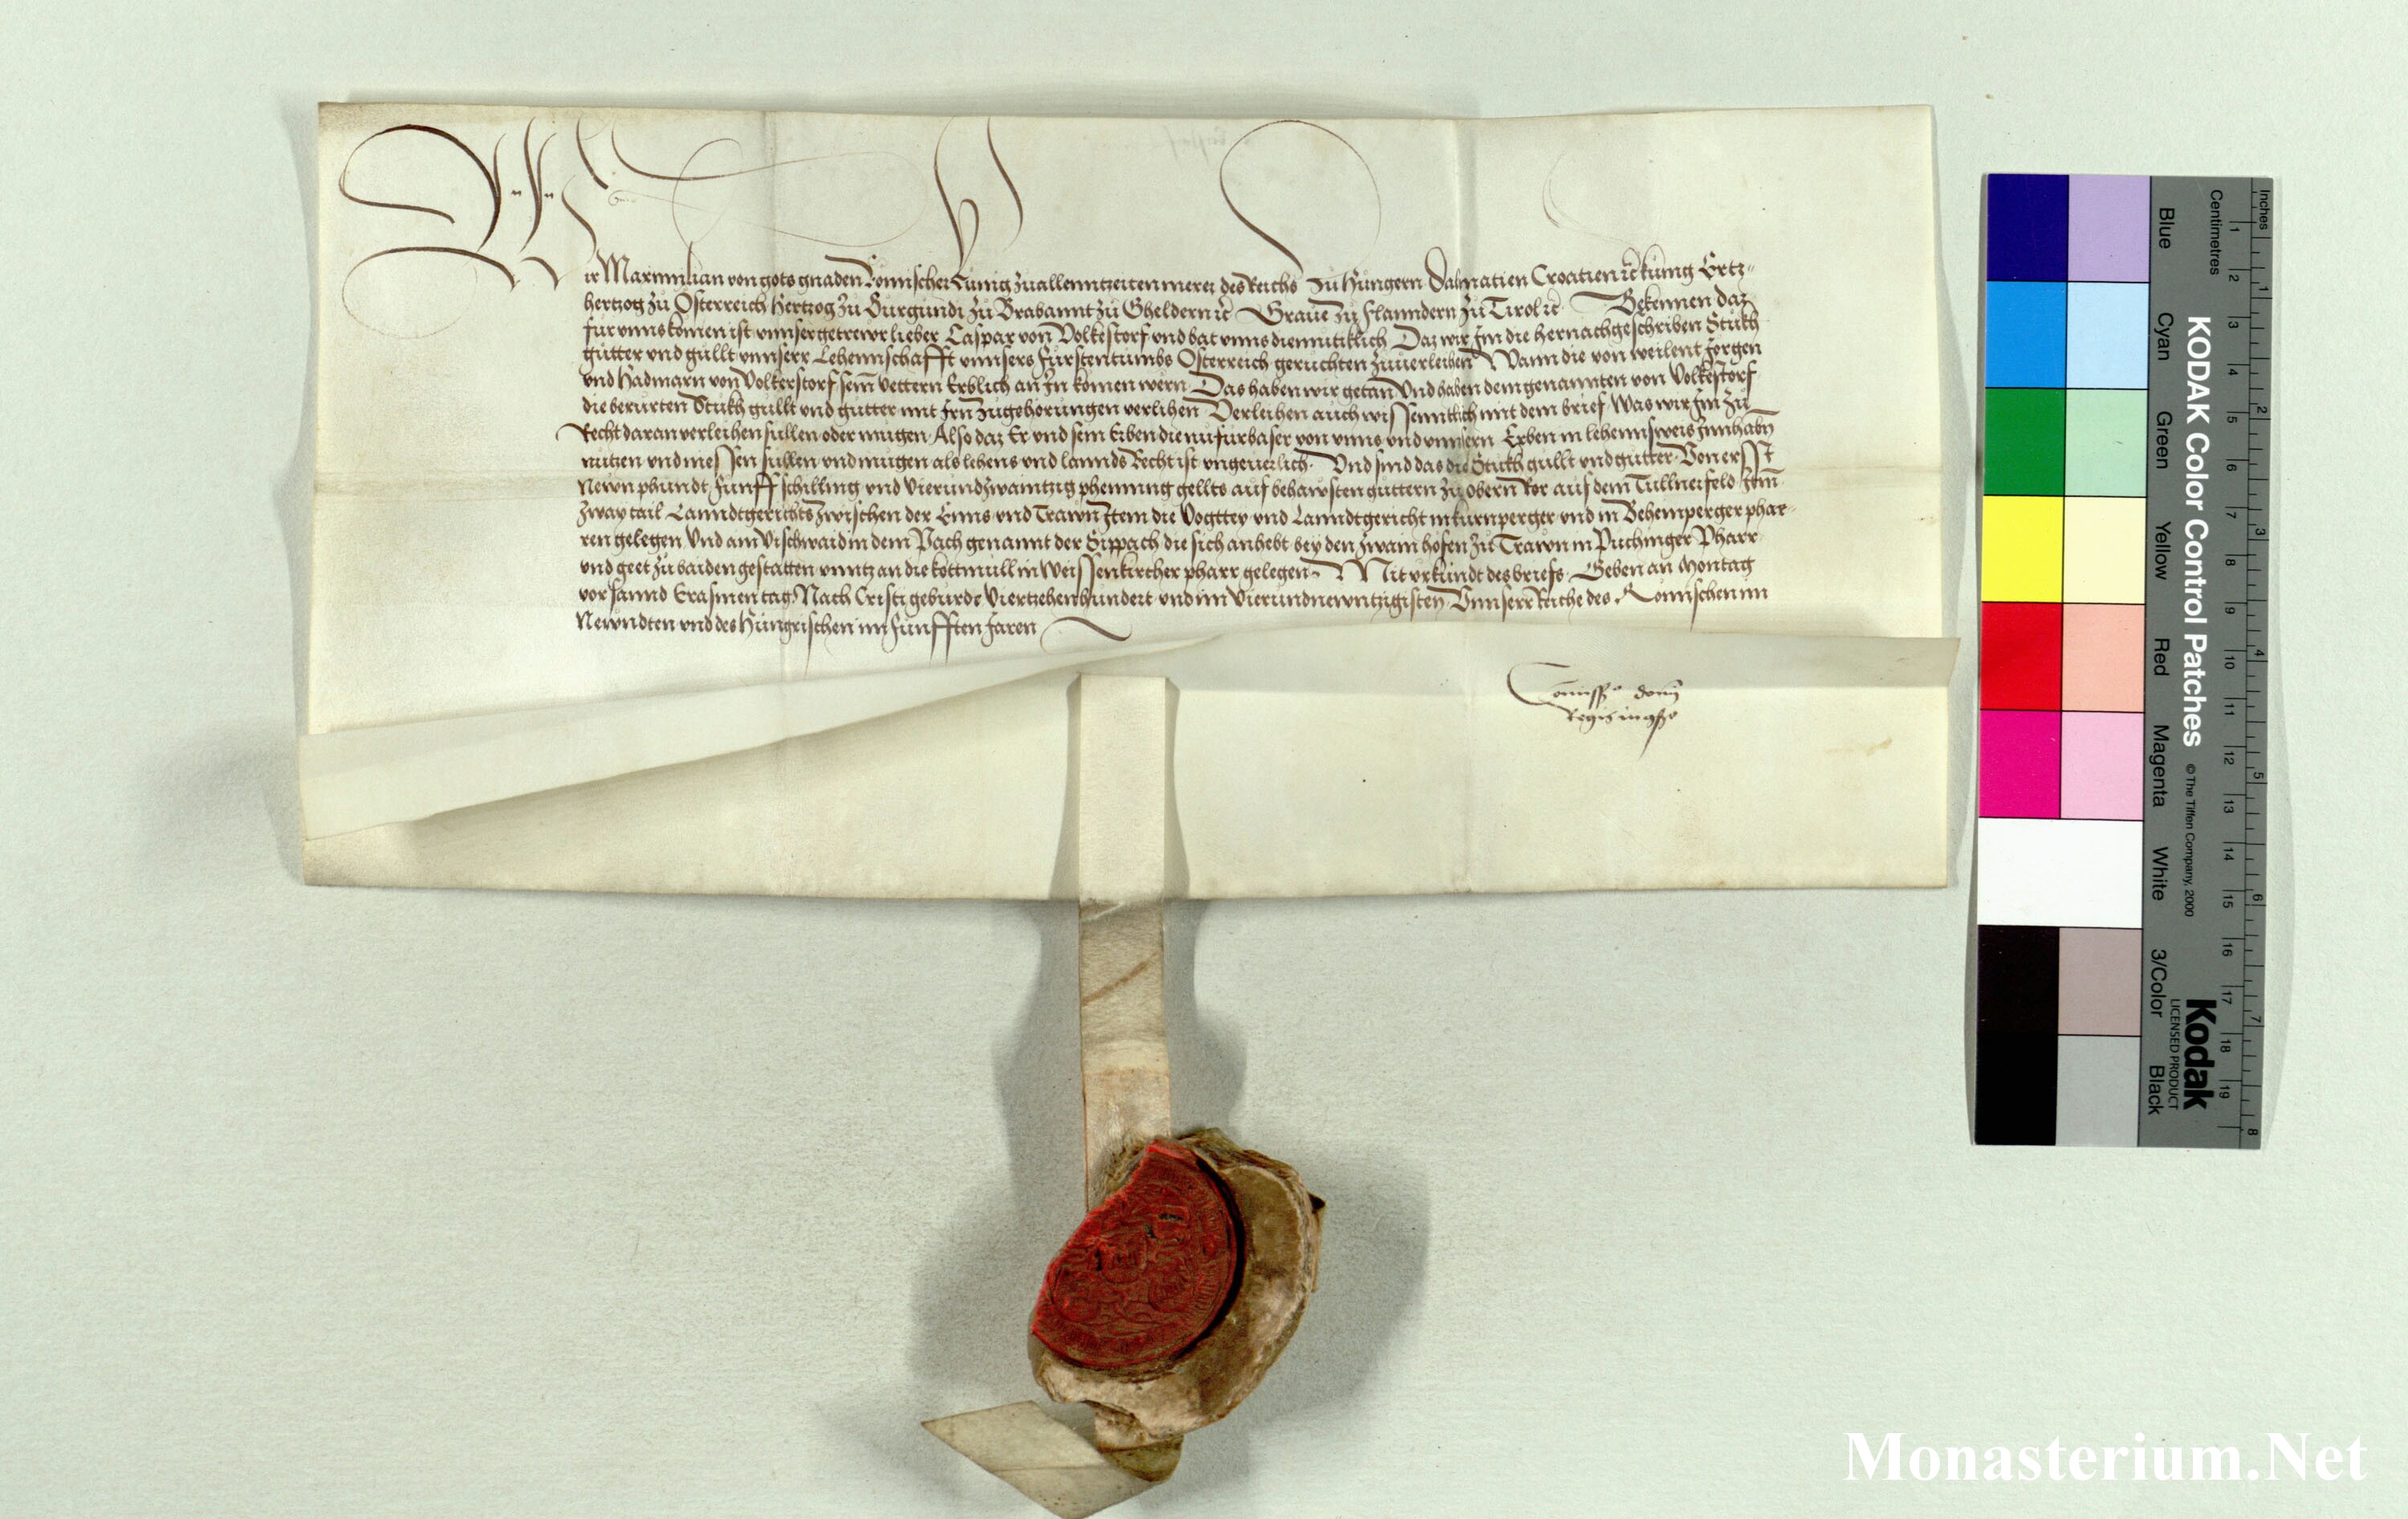 Wir Maximilian von gots gnaden Romischer Kunig zuallenntzeiten merer des Reichs zu Hungern Dalmatien Croatien ꝛc kunig Ertz-
hertzog zu Osterreich Hertzog zu Burgundi zu Brabannt zu Gheldern ꝛc Graue zu Flanndern zu Tirol ꝛc Bekennen daz
fur vnns komen ist vnnser getrewr lieber Caspar von Volkestorf vnd bat vnns diemutiklich Daz wir Im die hernachgeschriben Stukh
gutter vnd gullt vnnserr Lehennschafft vnnsers furstentumbs Osterreich geruchten zuuerleihen Wann die von weilent Jorgen
vnd Hadmarn von Volkerstorf sein vettern Erblich an In komen wern Das haben wir getan Vnd haben dem genannten von Volkestorf
die berurten Stukh gullt vnd gutter mit Irn zugehorungen verlihen Verleihen auch wissenntlich mit dem brief Was wir Im zu
Recht daran verleihen sullen oder mugen Also daz Er vnd sein Erben die nu furbaser von vnns vnd vnnsern Erben in lehennsweis Innhaben
nutzen vnd niessen sullen vnd mugen als lehens vnd lannds Recht ist vngeuerlich Vnd sind das die Stukh gullt vnd gutter Von erst
Newn phundt funff schilling vnd vierundzwaintzig phenning gellts auf behawsten guttern zu obern Ror auf dem Tullneifeld Item
zway tail Lanndtgerichts zwischen der Enns vnd Trawn Item die Vogttey vnd Lanndtgericht in kurnperger vnd in Behemperger phar-
ren gelegen Vnd am Vischwaid in dem Pach genannt der Sippach die sich anhebt bey den zwain hofen zu Trawn in Puchinger Pharr
vnd geet zu baiden gestatten vnntz an die kottmull in Weissenkircher pharr gelegen Mit vrkundt des briefs Geben an Montag
vor sannd Erasmen tag Nach Cristi geburde Viertzehenhundert vnd im Vierundnewntzigisten Vnnserr Reiche des Romischen im
Newndten vnd des Hungrischen im funfften Jaren
Comissio domini
Regis in
KODAK Color Control Patches
© The Tiffen Company, 2000
Kodak
LICENSED PRODUCT
Blue
Cyan
Green
Yellow
Red
Magenta
White
3/Color
Black
Inches
1 2 3 4 5 6 7 8
Centimetres
1 2 3 4 5 6 7 8 9 10 11 12 13 14 15 16 17 18 19
Monasterium.Net